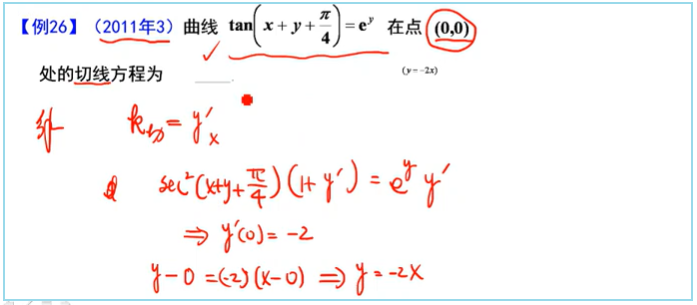 【例26】（2011年3）曲线 tan(x+y+π/4)=e^y 在点 (0,0)
处的切线方程为 ______. (y=-2x)
k切=y'ₓ
sec²(x+y+π/4)(1+y')=e^y y'
⇒ y'(0)=-2
y-0=(-2)(x-0) ⇒ y=-2x